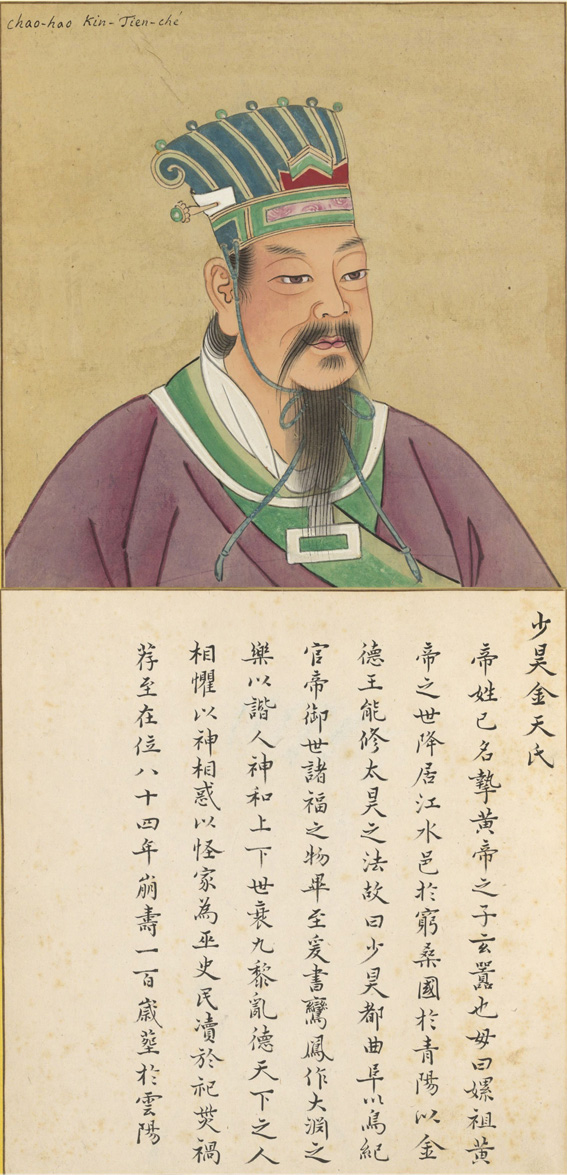 Chao-hao Kin-Tien-ché
少昊金天氏
帝姓已名摯黃帝之子玄囂也母曰嫘祖黃
帝之世降居江水邑於窮桑國於青陽以金
德王能修太昊之法故曰少昊都曲阜以鳥紀
官帝御世諸福之物畢至爰書鸞鳳作大淵之
樂以諧人神和上下世衰九黎亂德天下之人
相懼以神相惑以怪家為巫史民瀆於祀災禍
荐至在位八十四年崩壽一百歲塟於雲陽